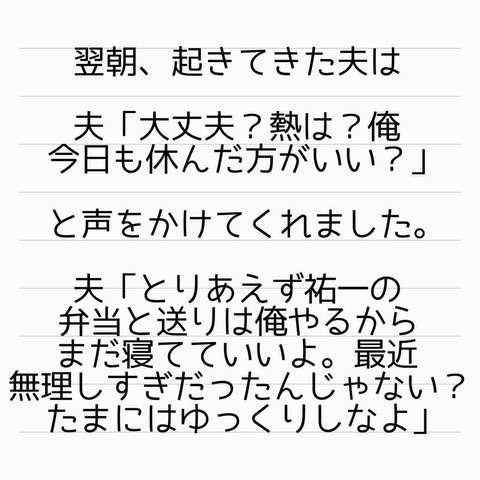 翌朝、起きてきた夫は
夫「大丈夫？熱は？俺
今日も休んだ方がいい？」
と声をかけてくれました。
夫「とりあえず祐一の
弁当と送りは俺やるから
まだ寝てていいよ。最近
無理しすぎだったんじゃない？
たまにはゆっくりしなよ」